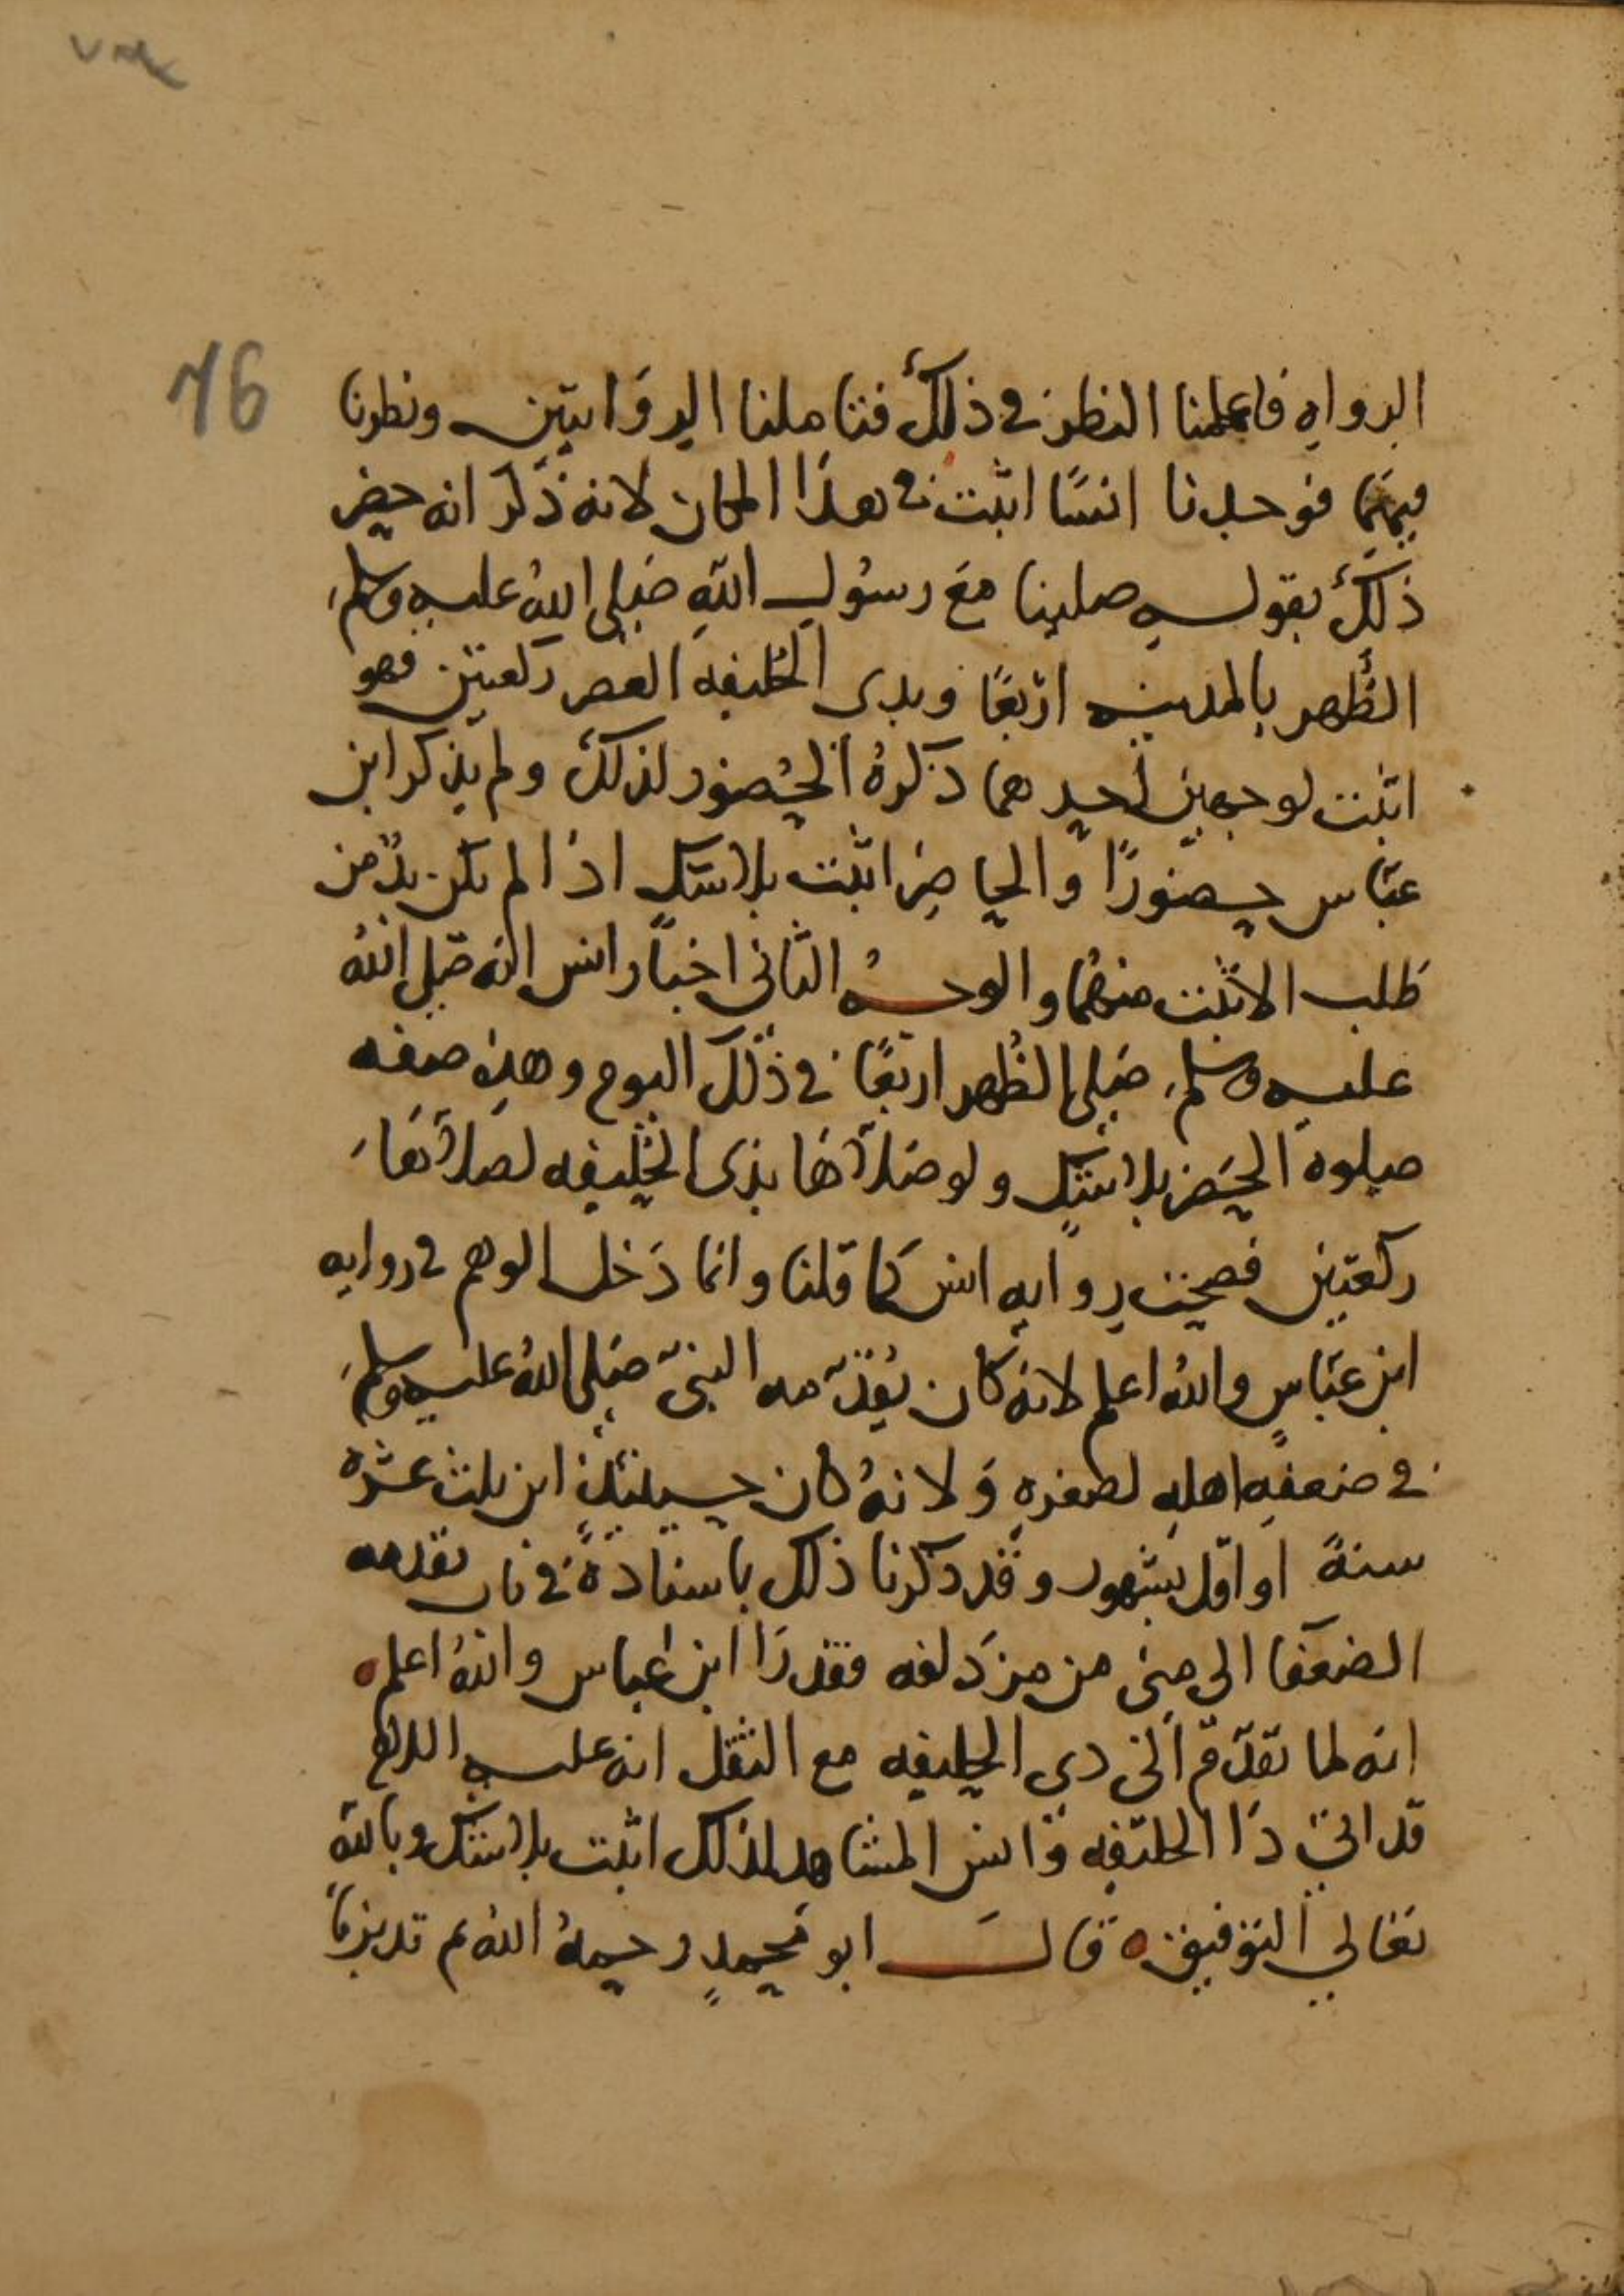 76
الرواه فاعملنا النظر في ذلك فتاملنا الروايتين ونظرنا
فيهما فوجدنا انسًا اثبت في هذا المكان لانه ذكر انه حضر
ذلك بقوله صلينا مع رسول الله صلى الله عليه وسلم
الظُهر بالمدينه اربعًا وبذى الحليفه العصر ركعتين فهو
اثبت لوجهين احدهما ذكره الحُضور لذلك ولم يذكر ابن
عباس حضورًا والحاضر اثبت بلا شك اذا لم يكن بدّ من
طلب الاثبت منهما والوجه الثاني اخبار انس انه صلى الله
عليه وسلم صلى الظُهر اربعًا في ذلك اليوم وهذه صفه
صلوه الحضر بلا شك ولو صلاها بذى الحليفه لصلاها
ركعتين فصحت روايه انس كما قلنا وانما دخل الوهم في روايه
ابن عباسٍ والله اعلم لانه كان يُقدّمه النبيّ صلى الله عليه وسلم
في ضعفه اهله لصغره ولانه كان حينئذٍ ابن ثلث عشره
سنةً او اقل بشهور وقد ذكرنا ذلك باسناده في باب تقدمه
الضعفا الى منى من مزدلفه فقدرا ابن عباس والله اعلم
انه لما تقدّم الى ذى الحليفه مع الثقل انه عليه السلام
قد اتى ذا الحليفه وانس المشاهد لذلك اثبت بلا شك وبالله
تعالي التوفيق ه قال ابو محمدٍ رحمهُ الله ثم تدبرنا